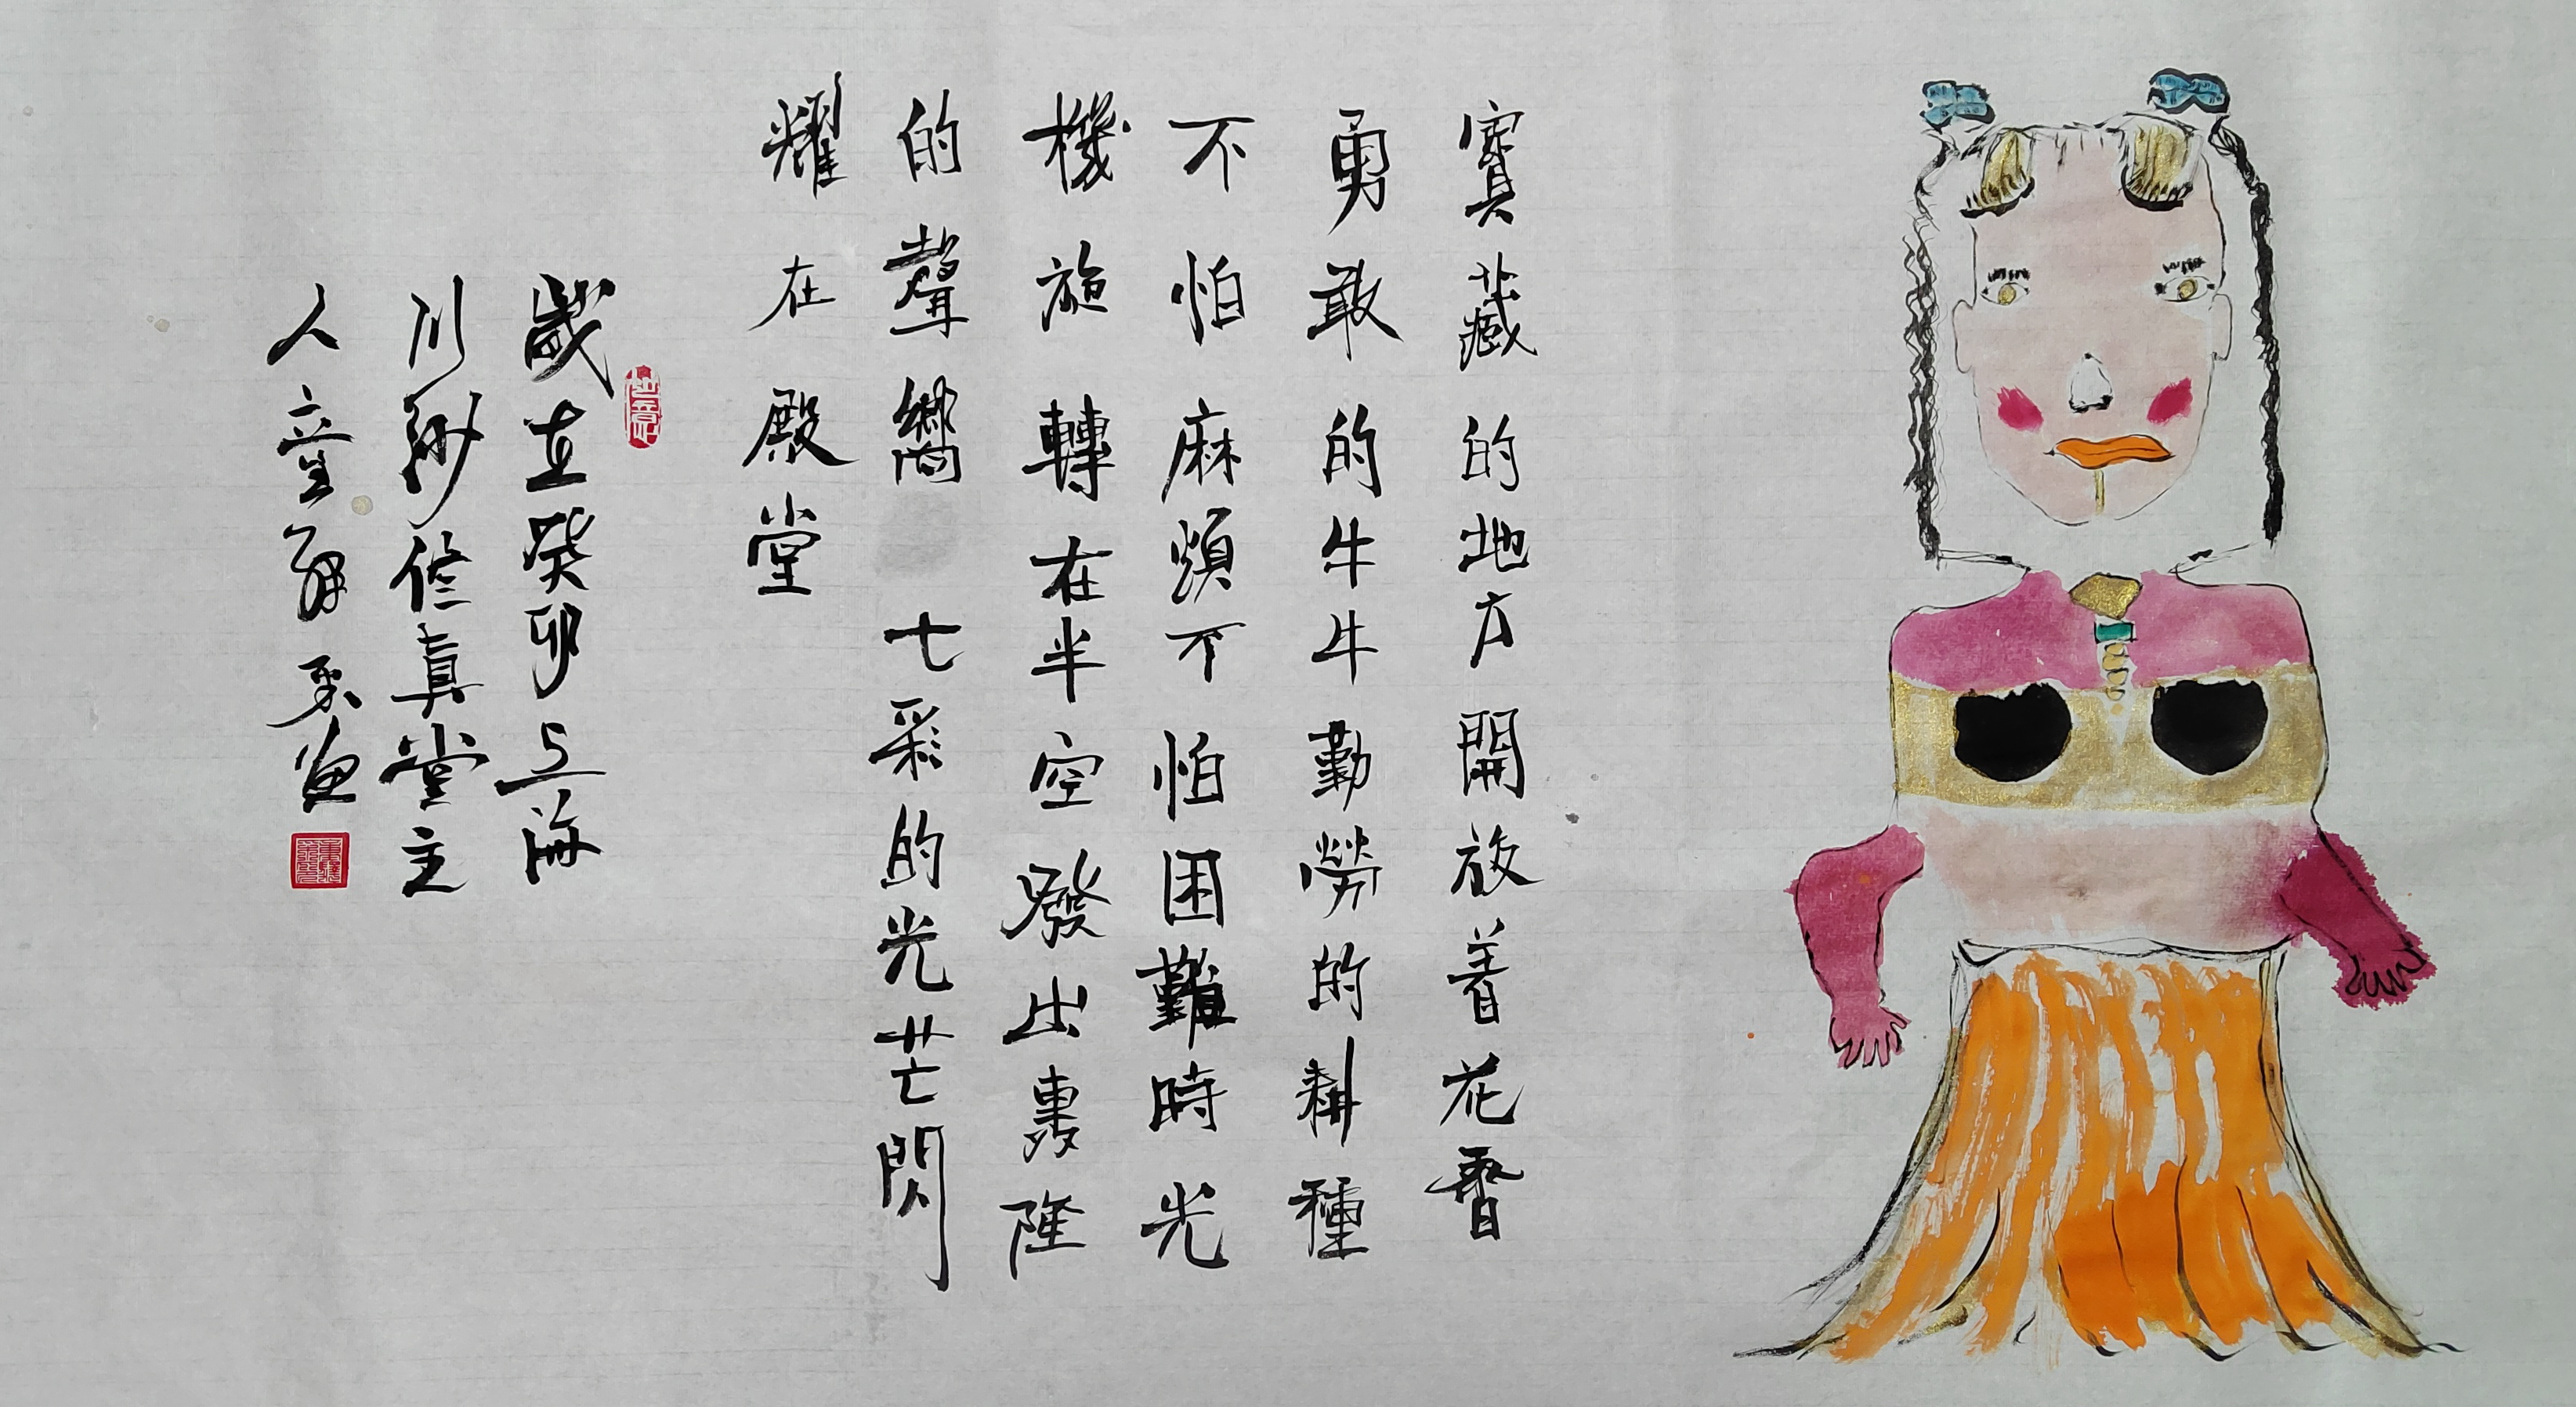 寶藏的地方開放着花香
勇敢的牛牛勤勞的耕種
不怕麻煩不怕困難時光
機旋轉在半空發出轟隆
的聲響七彩的光芒閃
耀在殿堂
歲在癸卯上海
川沙修真堂主
人童